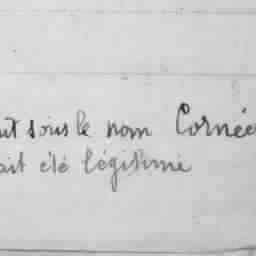 ut sous le nom Cornée
ait été légitimé